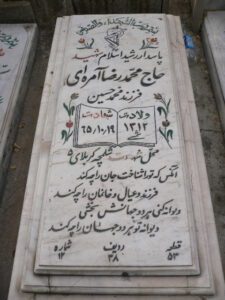 پاسدار رشید اسلام شهید
حاج محمد رضا آمره‌ای
فرزند محمد حسین
ولادت شهادت
۱۳۱۲ ۶۵/۱۰/۱۹
محل شهادت شلمچه کربلای ۵
آنکس که تو را شناخت جان را چه کند
فرزند و عیال و خانمان را چه کند
دیوانه کنی هر دو جهانش بخشی
دیوانه تو هر دو جهان را چه کند
قطعه ردیف شماره
۵۳ ۳۸ ۱۲